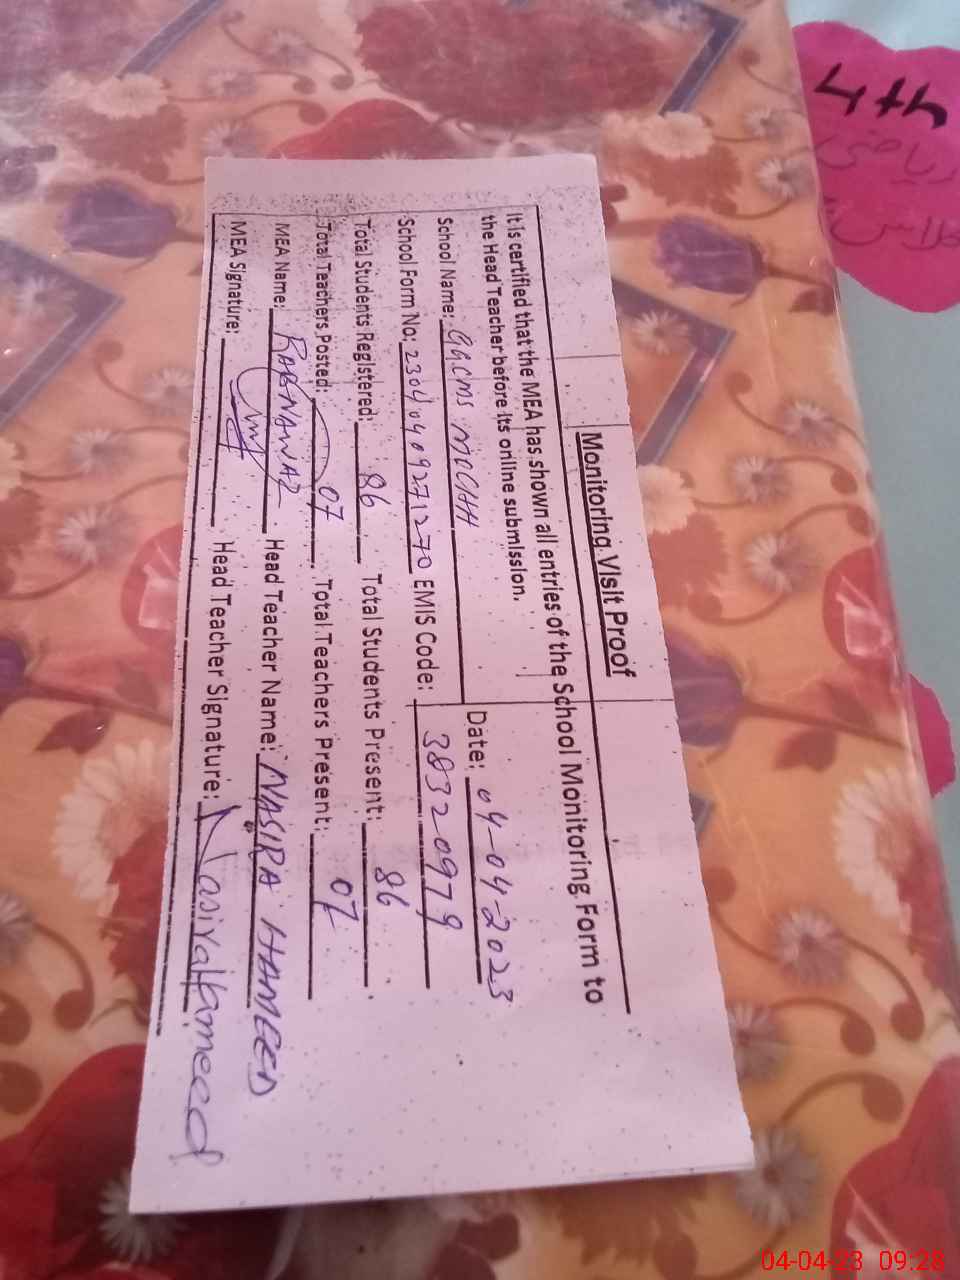 Monitoring Visit Proof
It is certified that the MEA has shown all entries of the School Monitoring Form to
the Head Teacher before its online submission.
School Name: GGCMS MOCHH Date: 04-04-2023
School Form No: 23040409271270 EMIS Code: 38320979
Total Students Registered: 86 Total Students Present: 86
Total Teachers Posted: 07 Total Teachers Present: 07
MEA Name: RABNAWAZ Head Teacher Name: NASIRA HAMEED
MEA Signature: Head Teacher Signature: Nasira Hameed
4th
ریاضی
کلاس
04-04-23 09:28